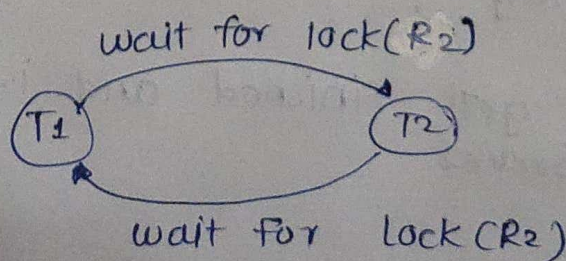 wait for lock(R2)
T1
T2
wait for Lock (R2)